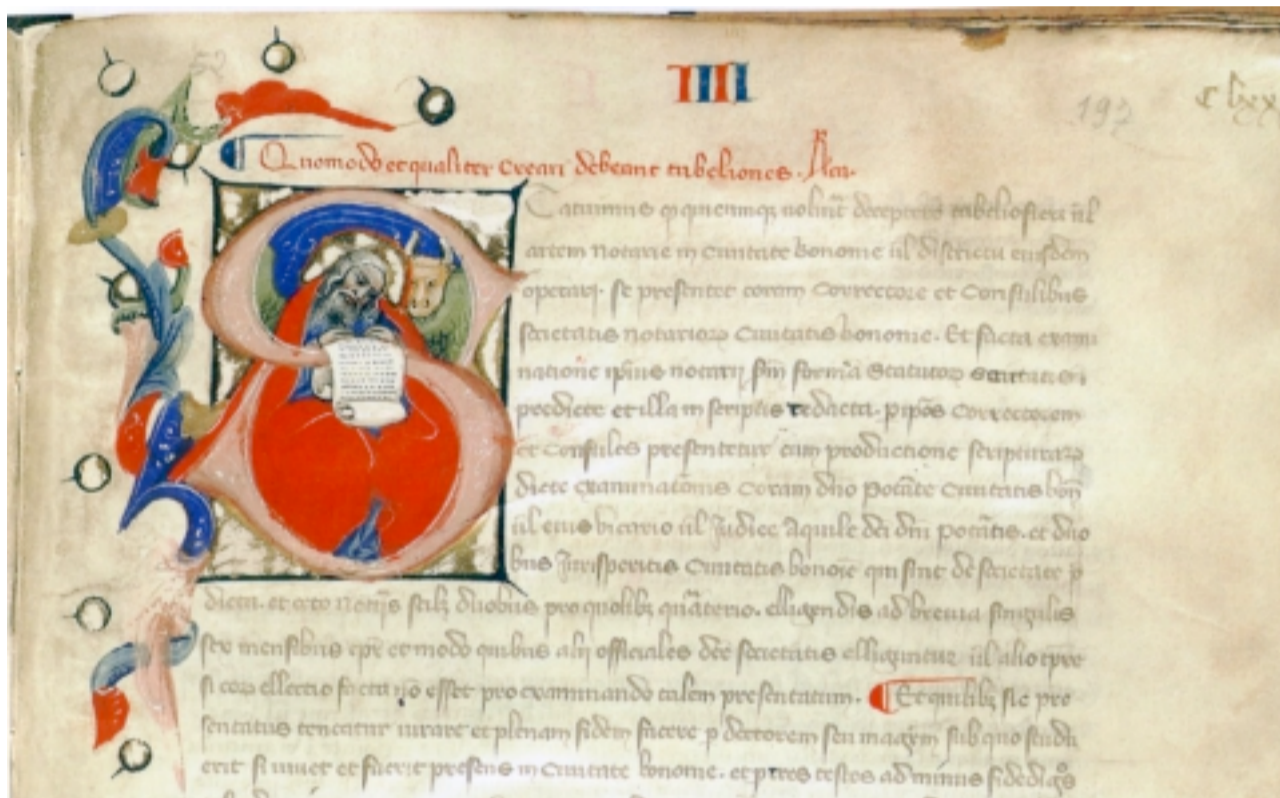 IIII
197 C lxx
Quomodo et qualiter creari debeant tabeliones. Rca.
Statuimus q quicumq noluit decetero tabelio fieri ul
artem notarie in Civitate bononie ul districtu eiusdem
operari. se presentet coram Correctore et Consulibus
societatis notarioz Civitatis bononie. Et facta exami
natione ipsius notarij sm forma statutoz societatis
predicte et illa in scriptis redacta. p ipos Correctorem
et Consules presentetur cum productione scripturaz
dicte examinatois coram dno potate Civitatis bon
ul eius vicario ul Judice Aquile dci dni potatis. et duo
bus Jurisperitis Civitatis bonoie qui sint de societate p
dicta. et octo notijs scilz duobus pro quolibz quaterio. elligendis ad brevia singulis
sex mensibus tpe et modo quibus alij officiales dce societatis elliguntur ul alio tpre
si eoz ellectio facta no esset pro examinando talem presentatum. Et quilibz sic pre
sentatus teneatur iurare et plenam fidem facere p doctorem seu magrm sub quo studu
erit si vivet et fuerit presens in Civitate bononie. et p tres testes ad minus fidedigos